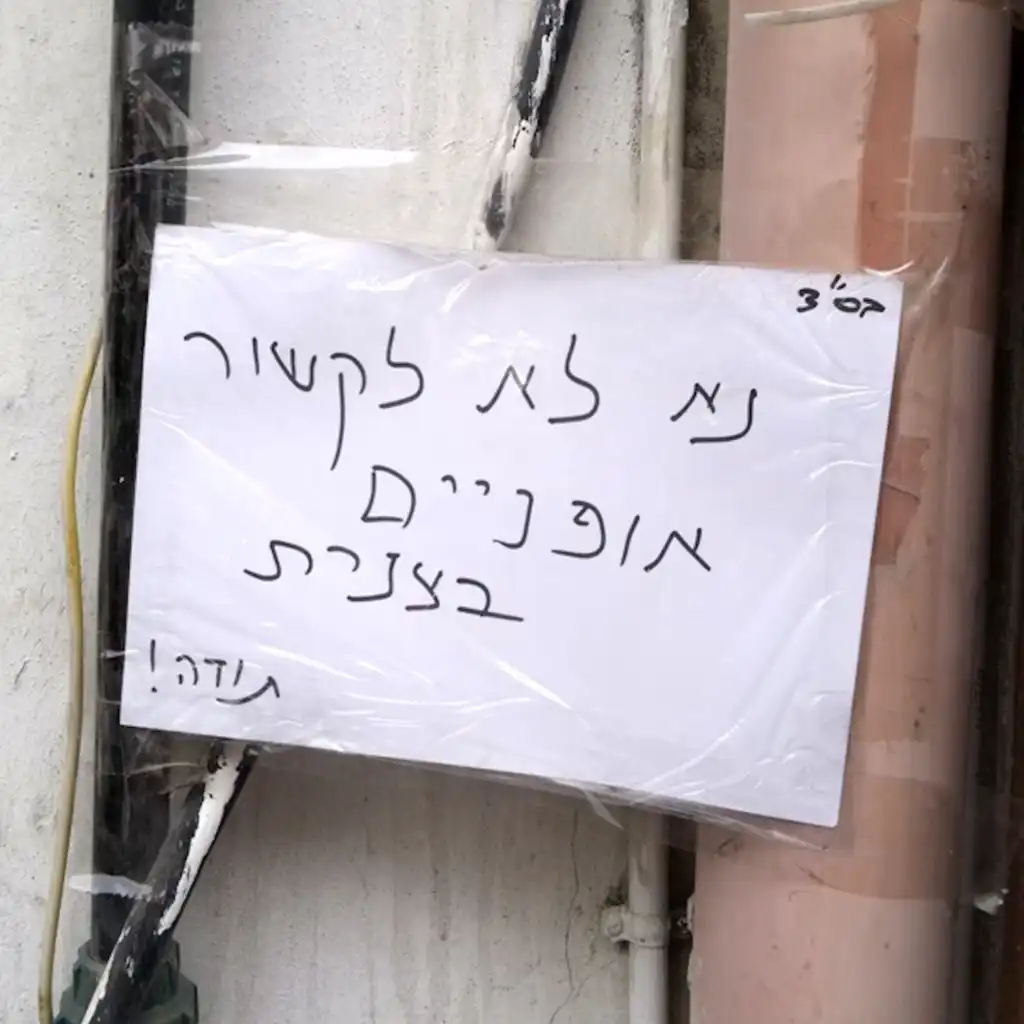 בס"ד
נא לא לקשור
אופניים
בצנרת
תודה!